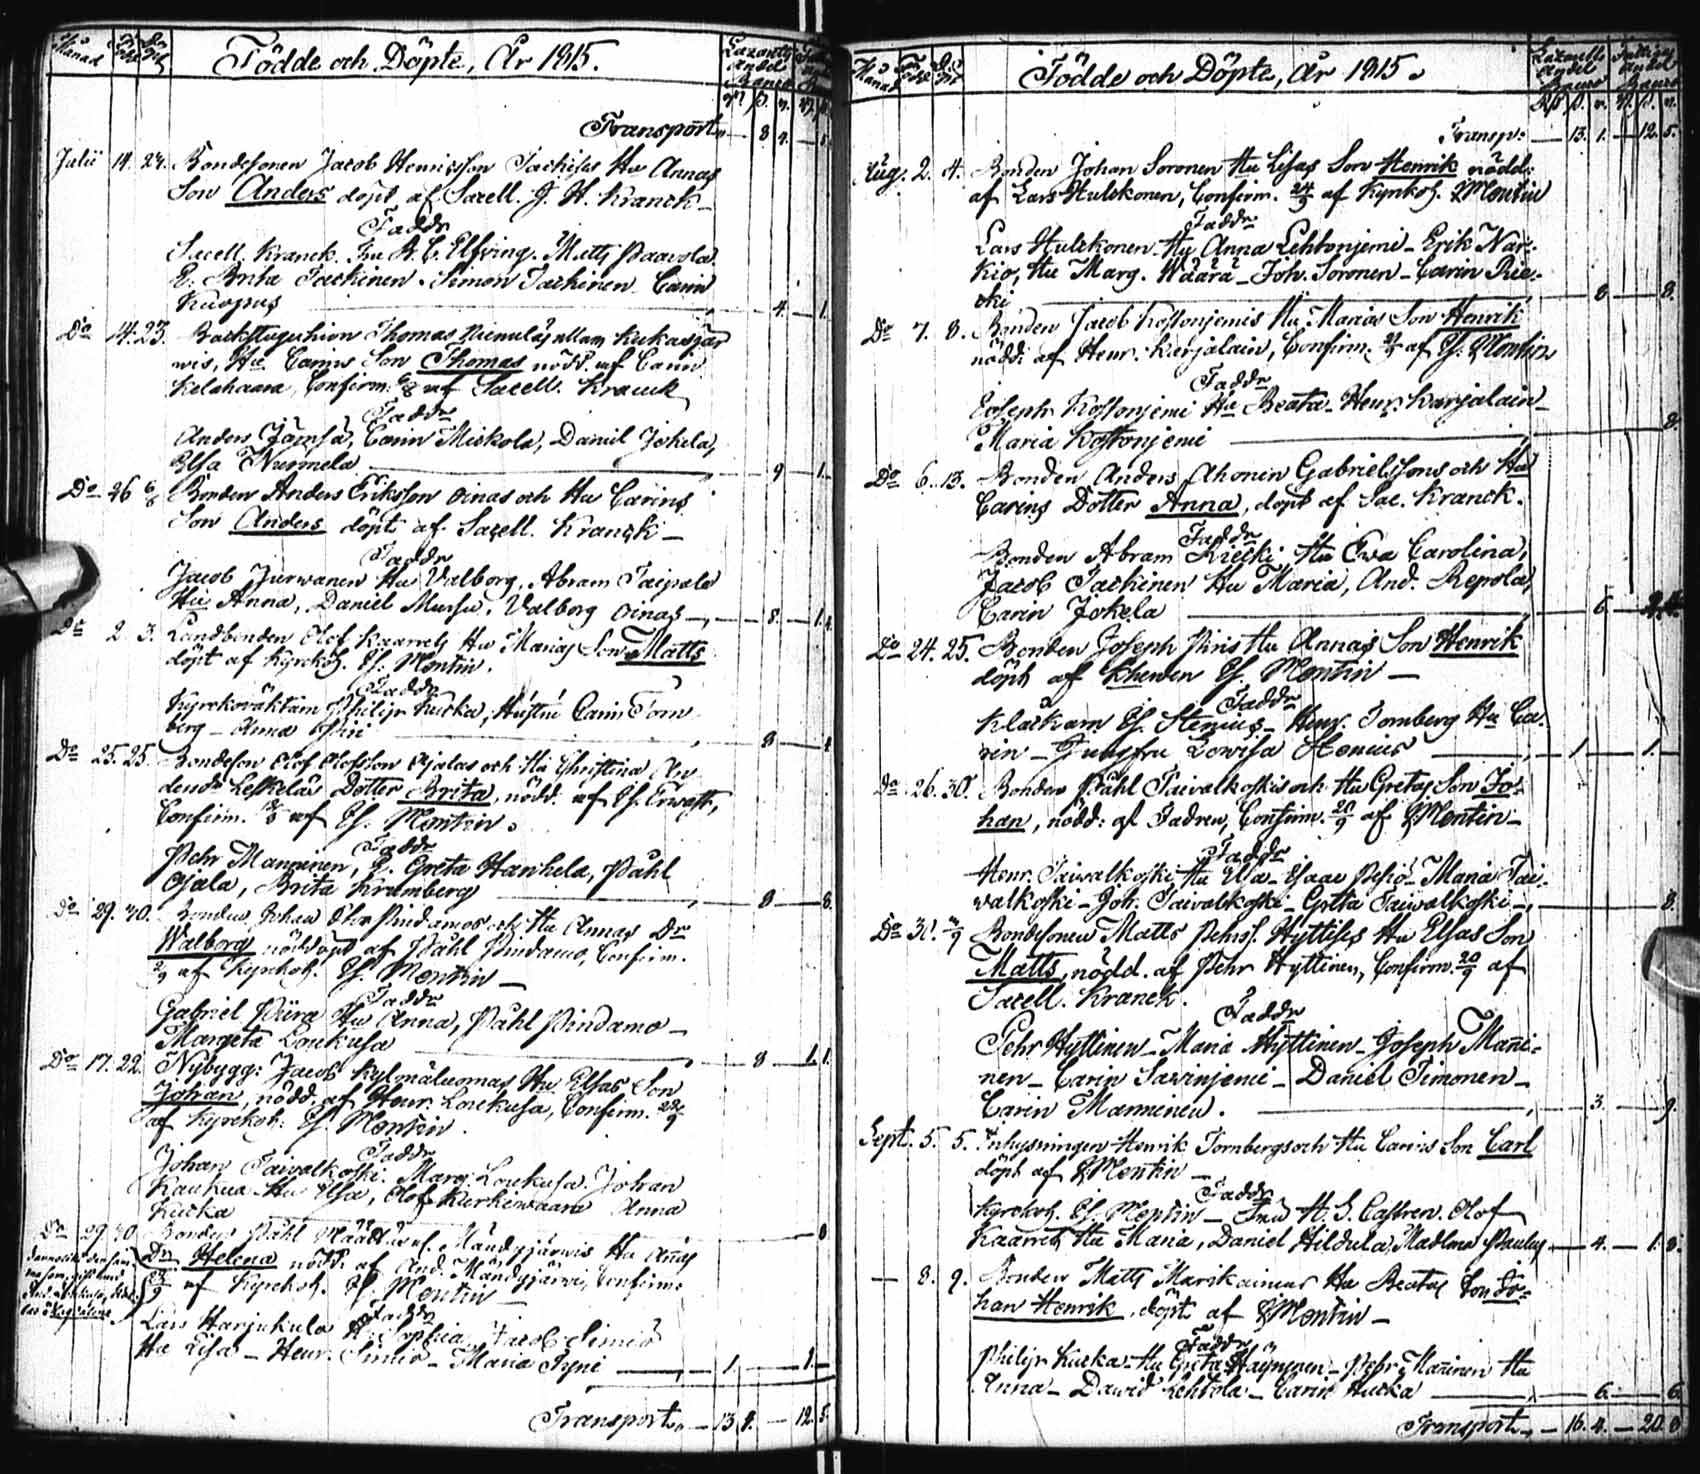 Månad Född Döpt Födde och Döpte, År 1815. Lazaretts Andel Banco
Transport 8 4. 5
Julii 14. 24. Bondesonen Jacob Henricsson Jachises Hu Annas
Son Anders döpt af Sacell. J. H. Kranck
Faddr
Sacell. Kranck. Fru B. C. Elfving. Matts Paavola
P. Brita Jachinen. Simon Jachinen Carin
Kuopus 4. 1.
Do 14. 23. Backstuguhion Thomas Niemelä, ellam Kukasjär
wis, Hu Carins Son Thomas nödd. af Carin
Kelahaara, Confirm. 6/8 af Sacell. Kranck
Faddr
Anders Jämsä, Carin Mickola, Daniel Jokela,
Elsa Nurmela 9 1.
Do 26 6/8 Bonden Anders Eriksson Oinas och Hu Carins
Son Anders döpt af Sacell. Kranck
Faddr
Jacob Jurwanen Hu Valborg, Abram Taipale
Hu Anna, Daniel Mursu, Valborg Oinas 8. 1.
Do 2. 3. Landbonden Olof Kaarrels Hu Marias Son Matts
döpt af Kyrckoh. Es. Mentin.
Faddr
Kyrckoväktaren Philip Kucka, Hustru Carin Torn
berg Anna Piri 8
Do 25. 25. Bondeson Olof Olofsson Ojalas och Hu Christina An
dersdr Leskelas Dotter Brita, nödd. af Es. Erwasti,
Confirm. af Es. Mentin.
Faddr
Pehr Manninen, P. Greta Hankela, Påhl
Ojala, Brita Kramberg 8 8.
Do 29. 30. Bonden Johan Pindamos och Hu Annas Dr
Walborg nöddöpt af Påhl Pindamo, Confirm.
2/9 af Kyrckoh. Es. Mentin
Faddr
Gabriel Piira Hu Anna, Påhl Pindamo
Margeta Loukusa 8 1.
Do 17. 22. Nybygg: Jacob Kylmäluomas Hu Elsas Son
Johan, nödd. af Henr. Loukusa, Confirm.
af Kyrckoh. Es. Mentin.
Faddr
Johan Taivalkoski. Marg. Loukusa. Johan
Kaukua Hu Elsa, Olof Kurkiwaara Anna
Kucka 8
Do 29. 30 Bonden Påhl Mändyjärwis Hu Annas
Dr Helena nödd. af And. Mändyjärwi, Confirm.
af Kyrckoh. Es. Mentin
Faddr
Lars Harjukulo Hu Sophia, Jacob Simiö
Hu Lisa Henr. Simiö Maria Tyni 1. 1.
Transport 13 1. 12. 5.
Månad Född Döpt Födde och Döpte, År 1815. Lazaretts Andel Banco
Transp: 13. 1. 12. 5.
Aug. 2. 4. Bonden Johan Soronen Hu Lisas Son Henrik nödd:
af Lars Hulckonen, Confirm. 24/9 af Kyrckoh. Es Mentin
Faddr
Lars Hulckonen Hu Anna Lehtonjemi Erik Nar-
kio, Hu Marg. Waara Joh. Soronen Carin Rie-
cki 8 8.
Do 7. 8. Bonden Jacob Kossonjemis Hu Marias Son Henrik
nödd: af Henr. Karjalain, Confirm. af Es. Mentin
Faddr
Joseph Kossonjemi Hu Beata Henr. Karjalain
Maria Kossonjemi 8
Do 6. 13. Bonden Anders Ahonen Gabrielssons och Hu
Carins Dotter Anna, döpt af Sac. Kranck.
Faddr
Bonden Abram Riecki Hu Ewa Carolina,
Jacob Jachinen Hu Maria, And. Repola,
Carin Jokela 6
Do 24. 25. Bonden Joseph Piris Hu Annas Son Henrik
döpt af Kheden Es. Mentin
Faddr
Klåckaren Es. Stenius Henr. Tornberg Hu Ca-
rin Jungfru Lowisa Heniús 1 1.
Do 26. 30. Bonden Påhl Taivalkoskis och Hu Gretas Son Jo-
han, nödd: af Fadren, Confirm. 20/9 af Es Mentin
Faddr
Henr. Taivalkoski Hu Elsa Isaac Pesiö Maria Tai-
walkoski Joh. Taivalkoski Greta Taiwalkoski 8.
Do 31. 3/9 Bondesonen Matts Pehrss. Hyttises Hu Elsas Son
Matts, nödd. af Pehr Hyttinen, Confirm. 20/9 af
Sacell. Kranck.
Faddr
Pehr Hyttinen Maria Hyttinen Joseph Mani-
nen Carin Sarinjemi Daniel Timonen
Carin Manninen. 3. 9.
Sept. 5. 5. Inhysningen Henrik Tornbergs och Hu Carins Son Carl
döpt af Es Mentin
Faddr
Kyrckoh. Es. Mentin Fru H. S. Castren. Olof
Kaarrela Hu Maria, Daniel Hildula, Madlena Paulus 4. 1. 8.
8. 9. Bonden Matts Marikainens Hu Beatas Son Jo-
han Henrik, döpt af Es Mentin
Faddr
Philip Kucka Hu Greta Häynynen Pehr Maninen Hu
Anna Dawid Lehtola Carin Kucka 6. 6.
Transport 16. 4. 20. 8